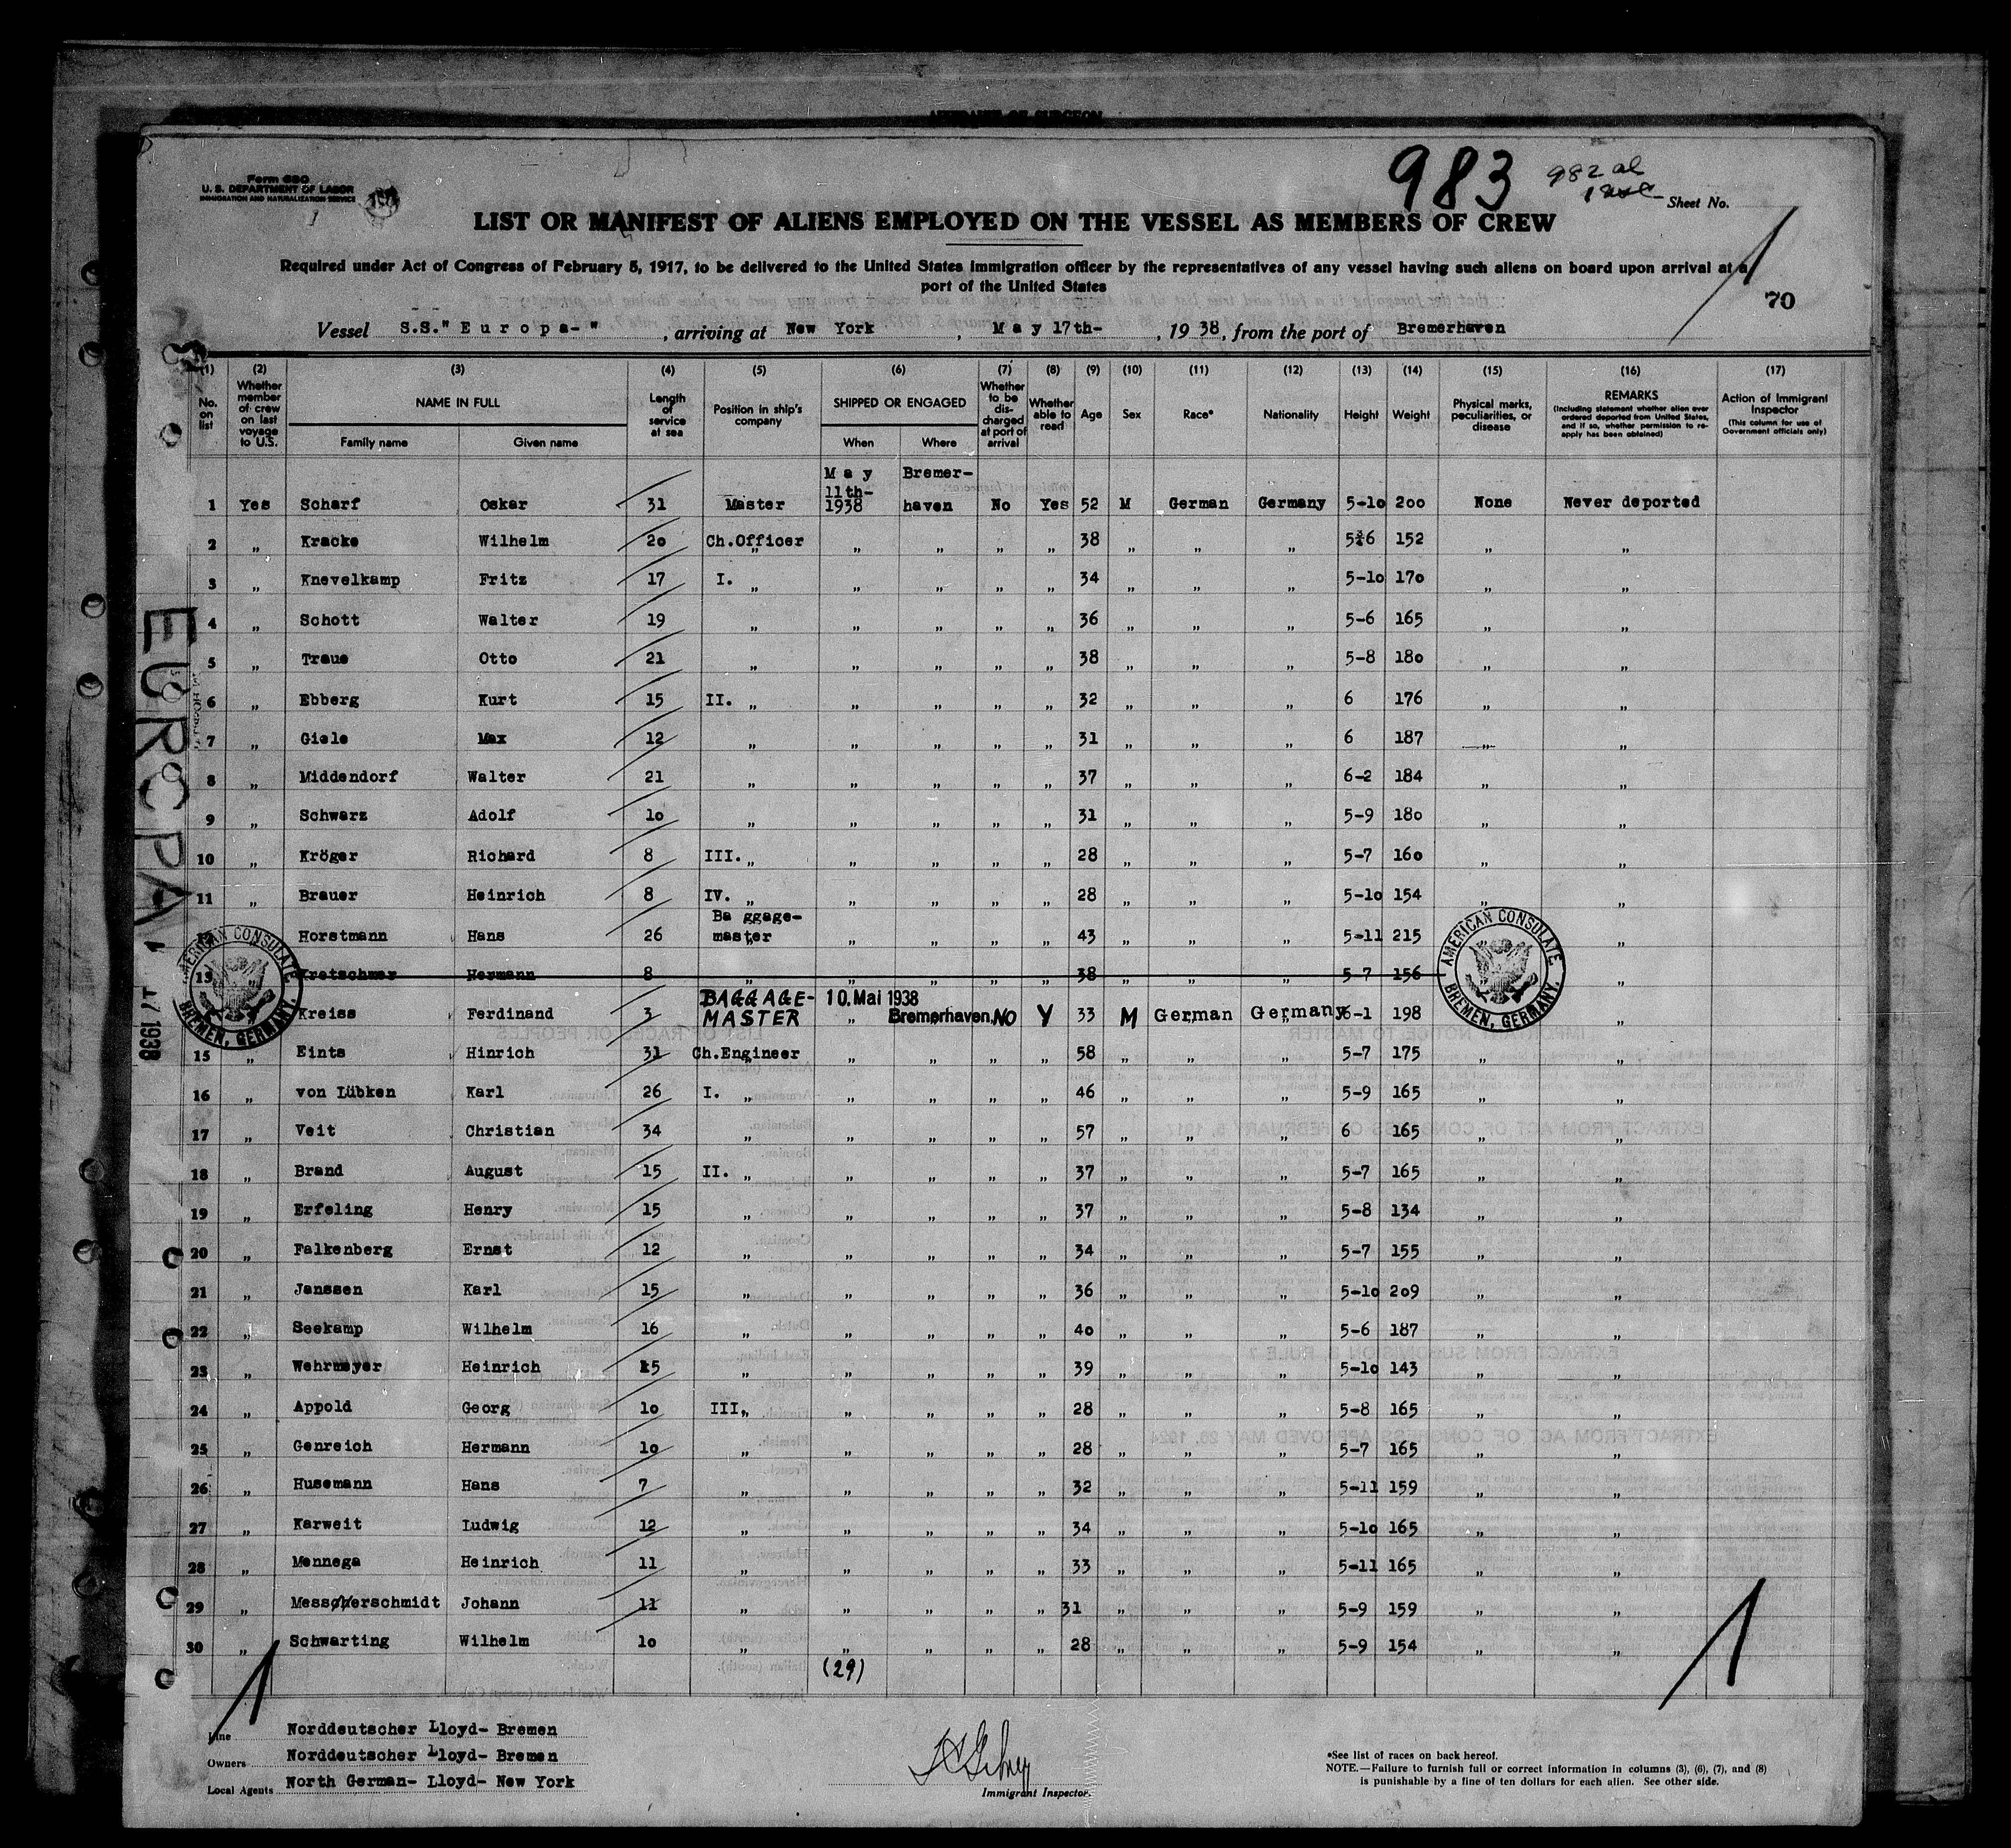 AFFIDAVIT OF SURGEON
Form 680
U. S. DEPARTMENT OF LABOR
IMMIGRATION AND NATURALIZATION SERVICE
983
982 al
Sheet No.
LIST OR MANIFEST OF ALIENS EMPLOYED ON THE VESSEL AS MEMBERS OF CREW
Required under Act of Congress of February 5, 1917, to be delivered to the United States immigration officer by the representatives of any vessel having such aliens on board upon arrival at a
port of the United States
70
Vessel S.S."Europa-", arriving at New York, May 17th-, 1938, from the port of Bremerhaven
(1) (2) (3) (4) (5) (6) (7) (8) (9) (10) (11) (12) (13) (14) (15) (16) (17)
No. on list Whether member of crew on last voyage to U.S. NAME IN FULL Length of service at sea Position in ship's company SHIPPED OR ENGAGED Whether to be discharged at port of arrival Whether able to read Age Sex Race* Nationality Height Weight Physical marks, peculiarities, or disease REMARKS (Including statement whether alien ever ordered deported from United States, and if so, whether permission to reapply has been obtained) Action of Immigrant Inspector (This column for use of Government officials only)
Family name Given name When Where
1 Yes Scharf Oskar 31 Master May 11th- 1938 Bremer- haven No Yes 52 M German Germany 5-10 200 None Never deported
2 „ Kracke Wilhelm 20 Ch.Officer „ „ „ „ 38 „ „ „ 5-6 152 „ „
3 „ Knevelkamp Fritz 17 I. „ „ „ „ „ 34 „ „ „ 5-10 170 „ „
4 „ Schott Walter 19 „ „ „ „ „ 36 „ „ „ 5-6 165 „ „
5 „ Traue Otto 21 „ „ „ „ „ 38 „ „ „ 5-8 180 „ „
6 „ Ebberg Kurt 15 II. „ „ „ „ „ 32 „ „ „ 6 176 „ „
7 „ Giele Max 12 „ „ „ „ „ 31 „ „ „ 6 187 „ „
8 „ Middendorf Walter 21 „ „ „ „ „ 37 „ „ „ 6-2 184 „ „
9 „ Schwarz Adolf 10 „ „ „ „ „ 31 „ „ „ 5-9 180 „ „
10 „ Kröger Richard 8 III. „ „ „ „ „ 28 „ „ „ 5-7 160 „ „
11 „ Brauer Heinrich 8 IV. „ „ „ „ „ 28 „ „ „ 5-10 154 „ „
12 Horstmann Hans 26 Baggage- master „ „ „ „ 43 „ „ „ 5-11 215 „
13 Kretschmer Hermann 8 „ „ „ „ „ 38 „ „ „ 5-7 156 „
Kreiss Ferdinand 3 BAGGAGE- MASTER 10. Mai 1938 Bremerhaven, NO Y 33 M German Germany 6-1 198 „
15 „ Eints Hinrich 31 Ch.Engineer „ „ „ „ 58 „ „ „ 5-7 175 „ „
16 „ von Lübken Karl 26 I. „ „ „ „ „ 46 „ „ „ 5-9 165 „ „
17 „ Veit Christian 34 „ „ „ „ „ 57 „ „ „ 6 165 „ „
18 „ Brand August 15 II. „ „ „ „ „ 37 „ „ „ 5-7 165 „ „
19 „ Erfeling Henry 15 „ „ „ „ „ 37 „ „ „ 5-8 134 „ „
20 „ Falkenberg Ernst 12 „ „ „ „ „ 34 „ „ „ 5-7 155 „ „
21 „ Janssen Karl 15 „ „ „ „ „ 36 „ „ „ 5-10 209 „ „
22 „ Seekamp Wilhelm 16 „ „ „ „ „ 40 „ „ „ 5-6 187 „ „
23 „ Wehrmeyer Heinrich 15 „ „ „ „ „ 39 „ „ „ 5-10 143 „ „
24 „ Appold Georg 10 III„ „ „ „ „ 28 „ „ „ 5-8 165 „ „
25 „ Genreich Hermann 10 „ „ „ „ „ 28 „ „ „ 5-7 165 „ „
26 „ Husemann Hans 7 „ „ „ „ „ 32 „ „ „ 5-11 159 „ „
27 „ Karweit Ludwig 12 „ „ „ „ „ 34 „ „ „ 5-10 165 „ „
28 „ Mennega Heinrich 11 „ „ „ „ „ 33 „ „ „ 5-11 165 „ „
29 „ Messerschmidt Johann 11 „ „ „ „ „ 31 „ „ „ 5-9 159 „ „
30 „ Schwarting Wilhelm 10 „ „ „ „ „ 28 „ „ „ 5-9 154 „ „
(29)
AMERICAN CONSULATE BREMEN, GERMANY.
AMERICAN CONSULATE BREMEN, GERMANY.
EUROPA
17 1938
Line Norddeutscher Lloyd- Bremen
Owners Norddeutscher Lloyd- Bremen
Local Agents North German- Lloyd- New York
Immigrant Inspector.
*See list of races on back hereof.
NOTE.—Failure to furnish full or correct information in columns (3), (6), (7), and (8)
is punishable by a fine of ten dollars for each alien. See other side.